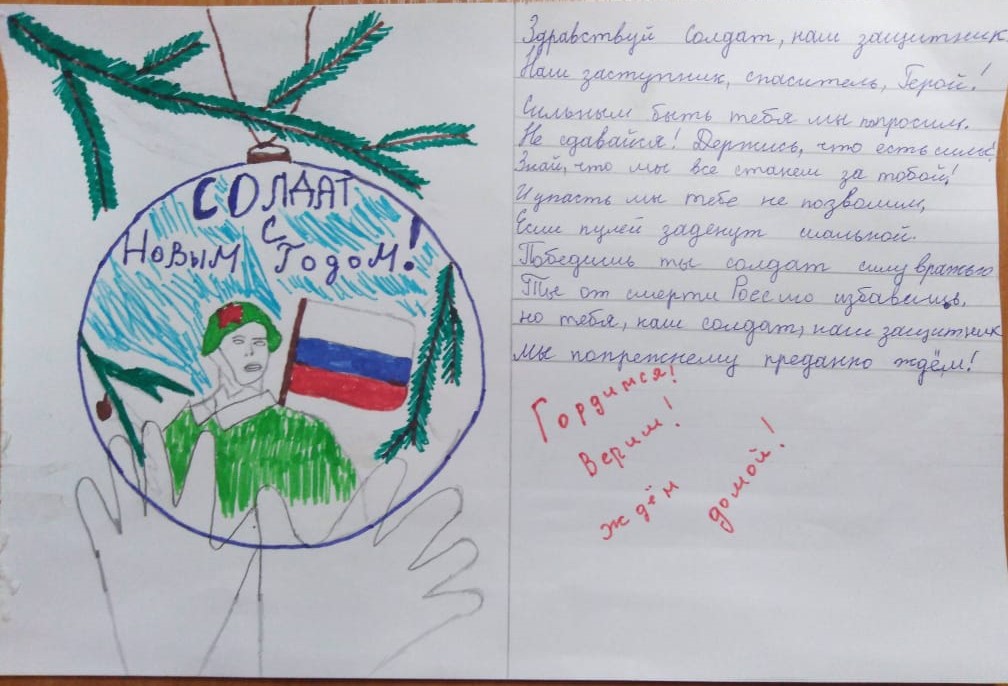 СОЛДАТ
С
НОВЫМ ГОДОМ!
Здравствуй Солдат, наш защитник
Наш заступник, спаситель, Герой!
Сильным быть тебя мы попросим.
Не сдавайся! Держись, что есть силы!
Знай, что мы все станем за тобой!
И упасть мы тебе не позволим,
Если пулей заденут шальной.
Победишь ты солдат силу вражью
от смерти избавишь,
но тебя, наш солдат, наш защитник
Мы попрежнему преданно ждём!
Гордимся!
Верим!
ждём
домой!